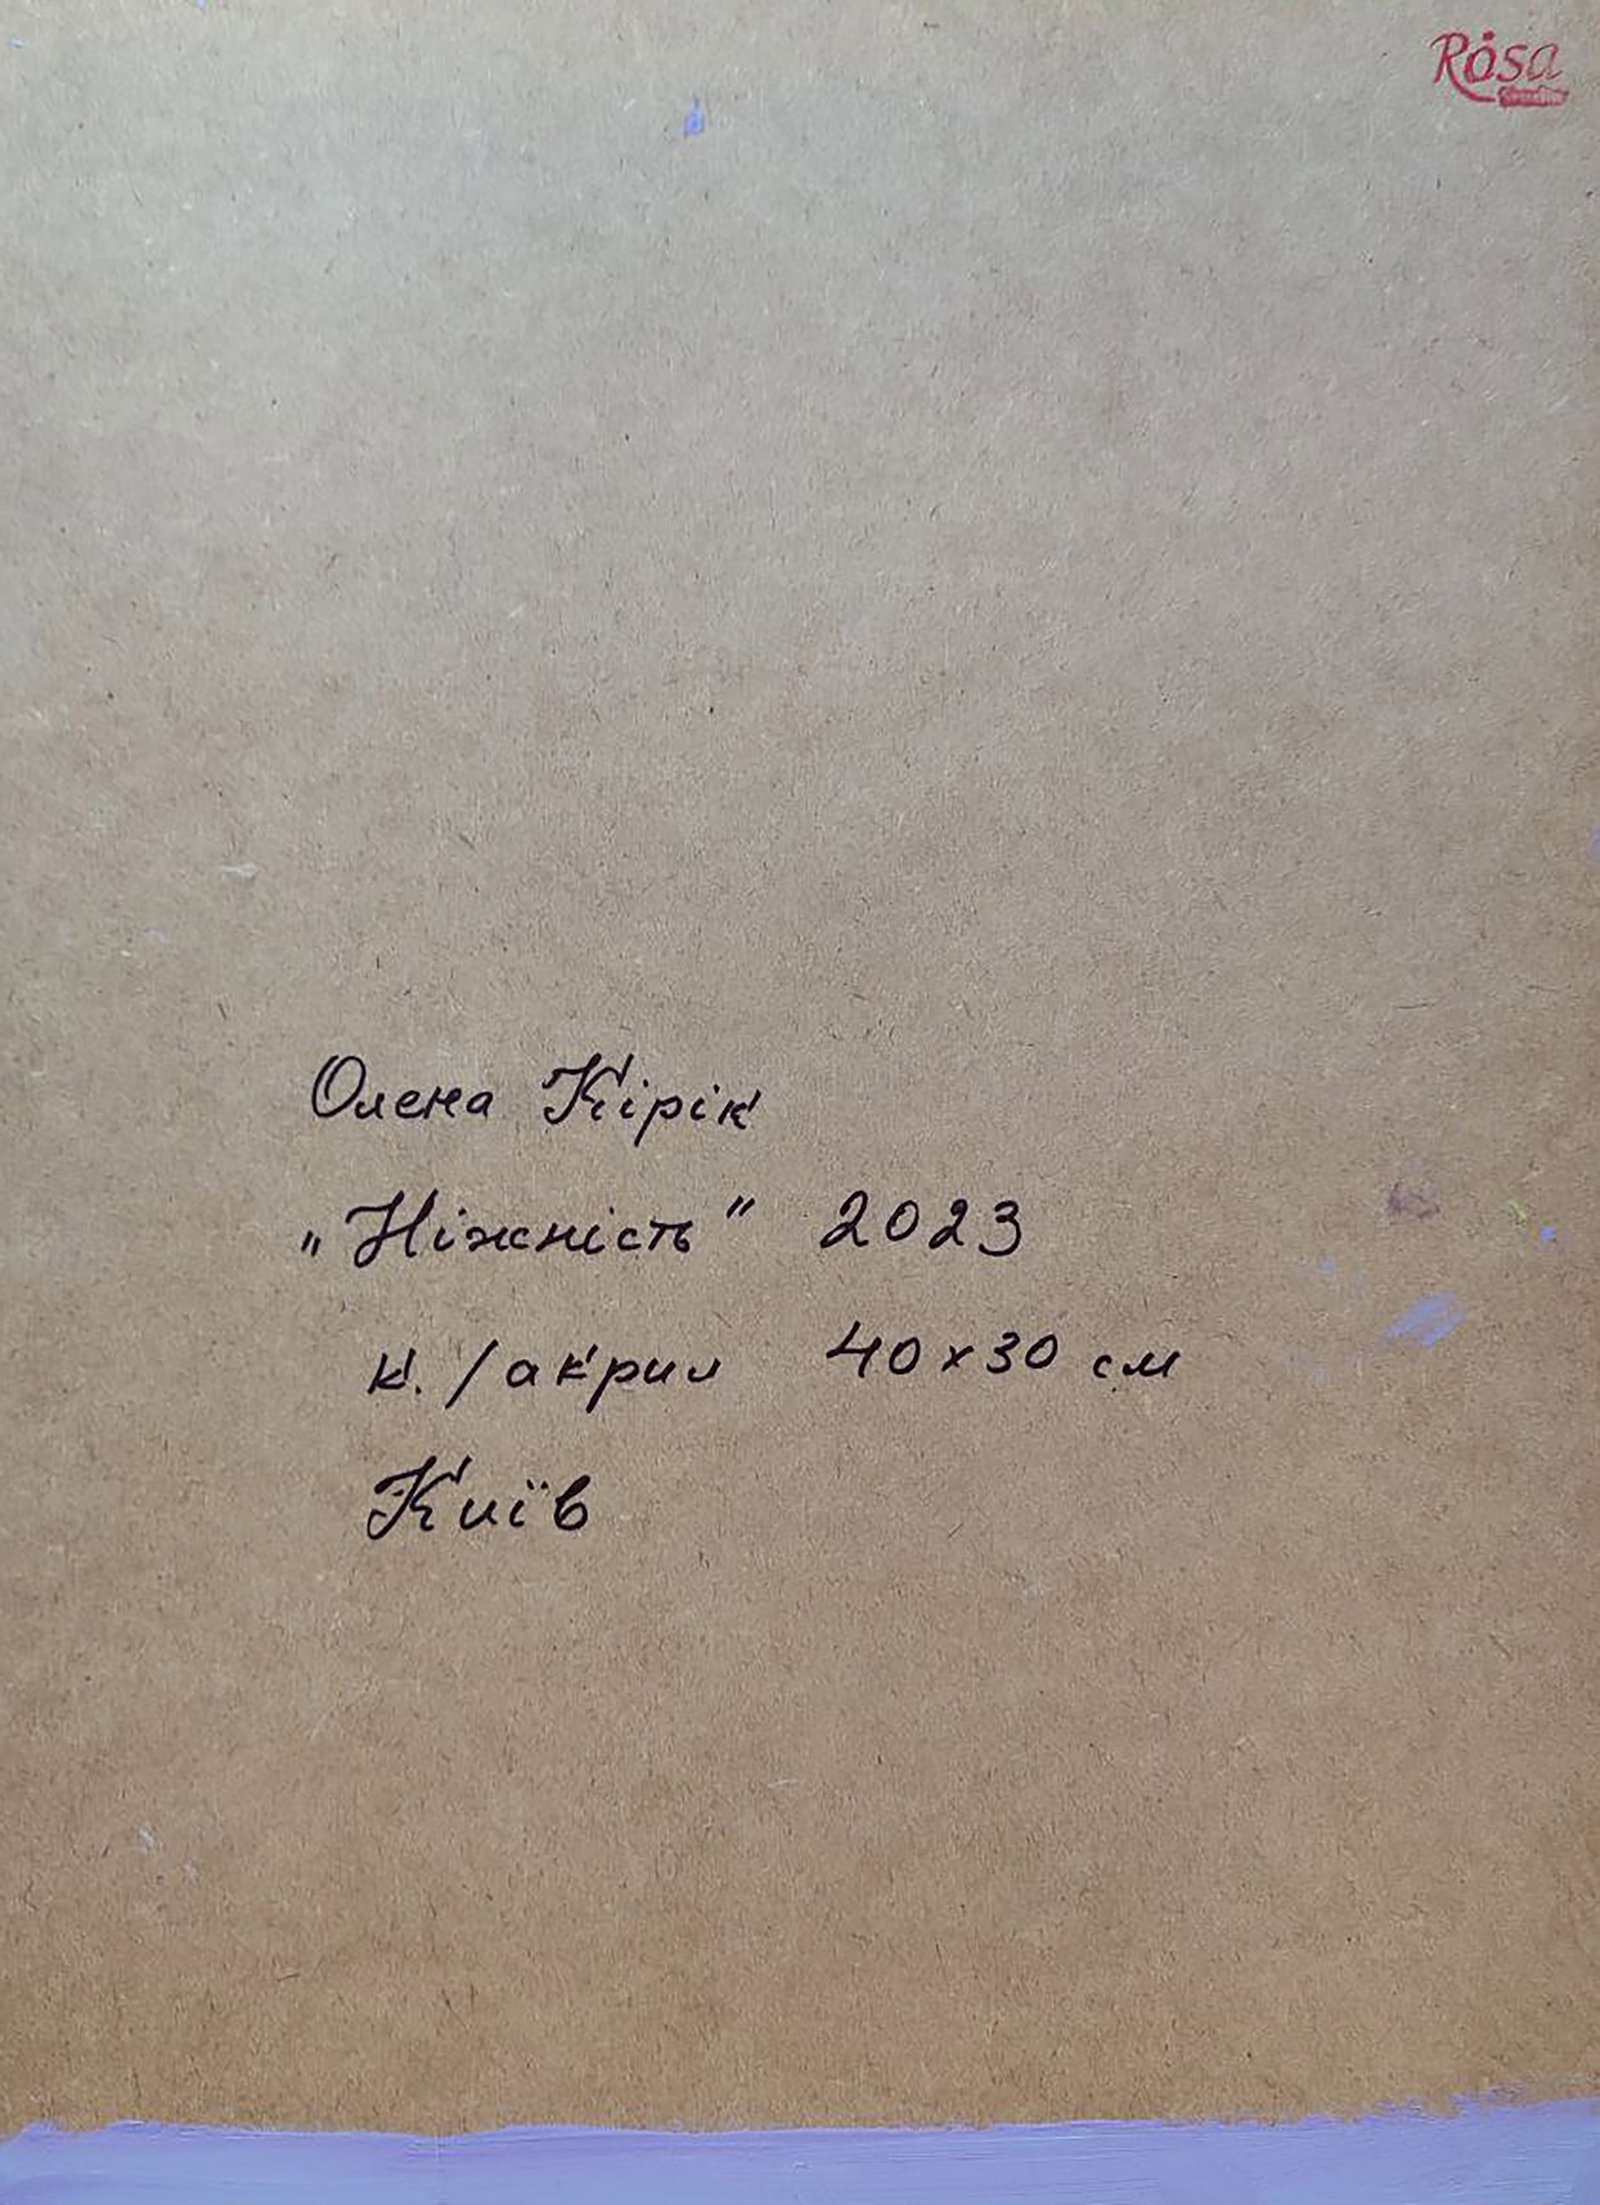 Rosa
Studio
Олена Кірік
„Ніжність" 2023
к. /акрил 40х30 см
Київ